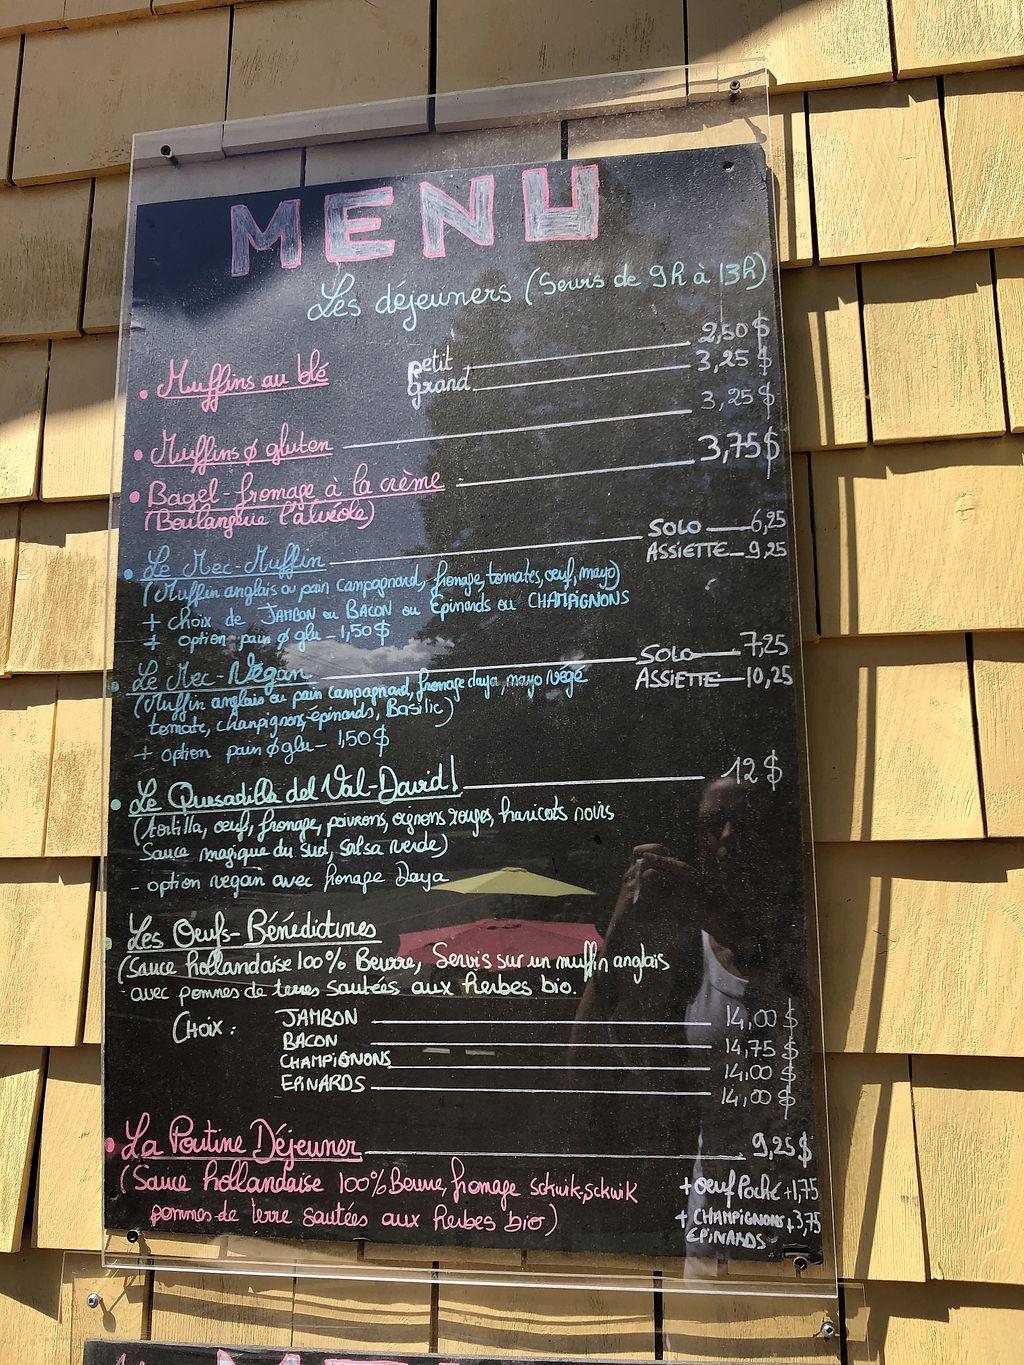 MENU
Les déjeuners (Servis de 9h à 13h)
• Muffins au blé petit 2,50$
grand 3,25$
• Muffins ∅ gluten 3,25$
• Bagel-fromage à la crème 3,75$
(Boulangerie l'alvéole)
• Le Mec-Muffin SOLO 6,25
ASSIETTE 9,25
(Muffin anglais ou pain campagnard, fromage, tomates, oeuf, mayo)
+ choix de JAMBON ou BACON ou Épinards ou CHAMPIGNONS
+ option pain ∅ glu - 1,50$
• Le Mec-Végan SOLO 7,25
ASSIETTE 10,25
(Muffin anglais ou pain campagnard, fromage daya, mayo végé
tomate, champignons, épinards, Basilic)
+ option pain ∅ glu - 1,50$
• Le Quesadilla del Val-David! 12$
(tortilla, oeufs, fromage, poivrons, oignons rouges, haricots noirs
Sauce magique du sud, salsa verde)
- option vegan avec fromage Daya
• Les Oeufs-Bénédictines
(Sauce hollandaise 100% Beurre, Servis sur un muffin anglais
avec pommes de terres sautées aux herbes bio.
CHOIX : JAMBON 14,00$
BACON 14,75$
CHAMPIGNONS 14,00$
EPINARDS 14,00$
• La Poutine Déjeuner 9,25$
(Sauce hollandaise 100% Beurre, fromage schwik-schwik
pommes de terre sautées aux herbes bio)
+ oeuf Poché +1,75
+ CHAMPIGNONS + 3,75
EPINARDS